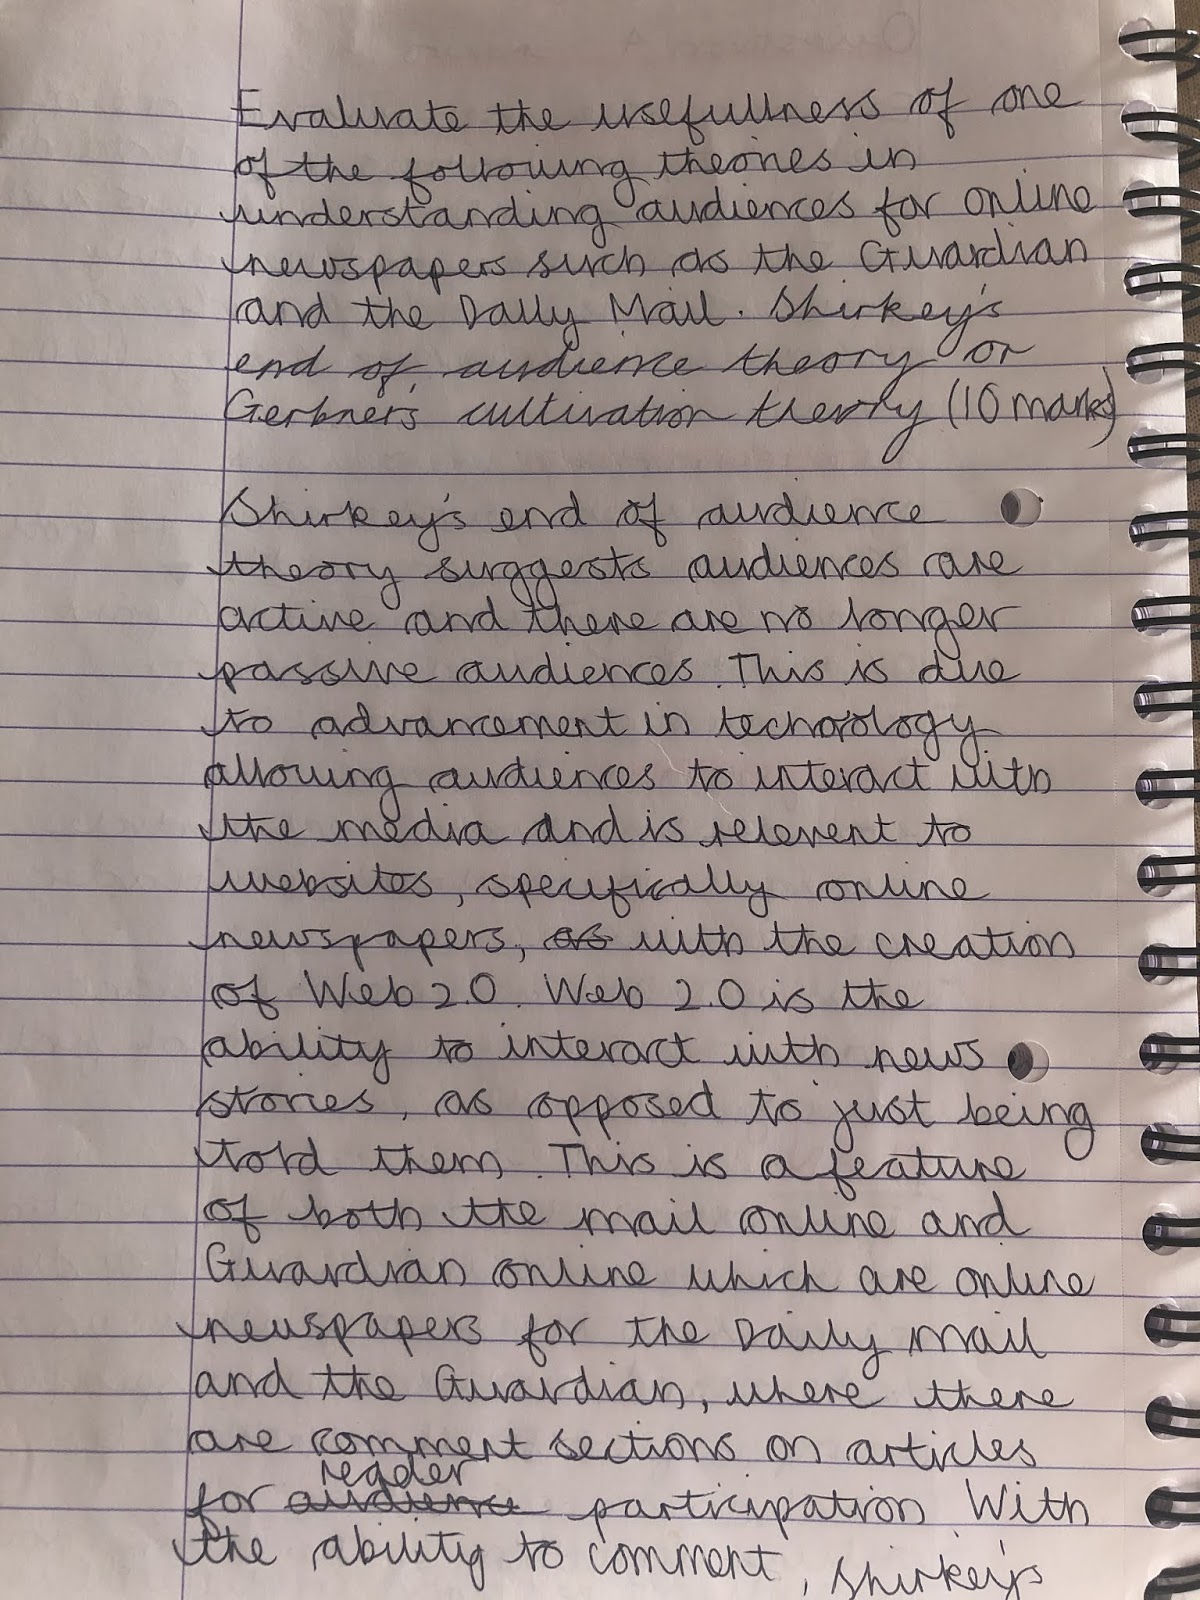 Evaluate the usefullness of one
of the following theories in
understanding audiences for online
newspapers such as the Guardian
and the Daily Mail. Shirkey's
end of audience theory or
Gerbner's cultivation theory (10 marks)
Shirkey's end of audience
theory suggests audiences are
active and there are no longer
passive audiences. This is due
to advancement in technology
allowing audiences to interact with
the media and is relevent to
websites, specifically online
newspapers, as with the creation
of Web 2.0. Web 2.0 is the
ability to interact with news
stories, as opposed to just being
told them. This is a feature
of both the mail online and
Guardian online which are online
newspapers for the Daily Mail
and the Guardian, where there
are comment sections on articles
reader
for audience participation. With
the ability to comment, Shirkey's